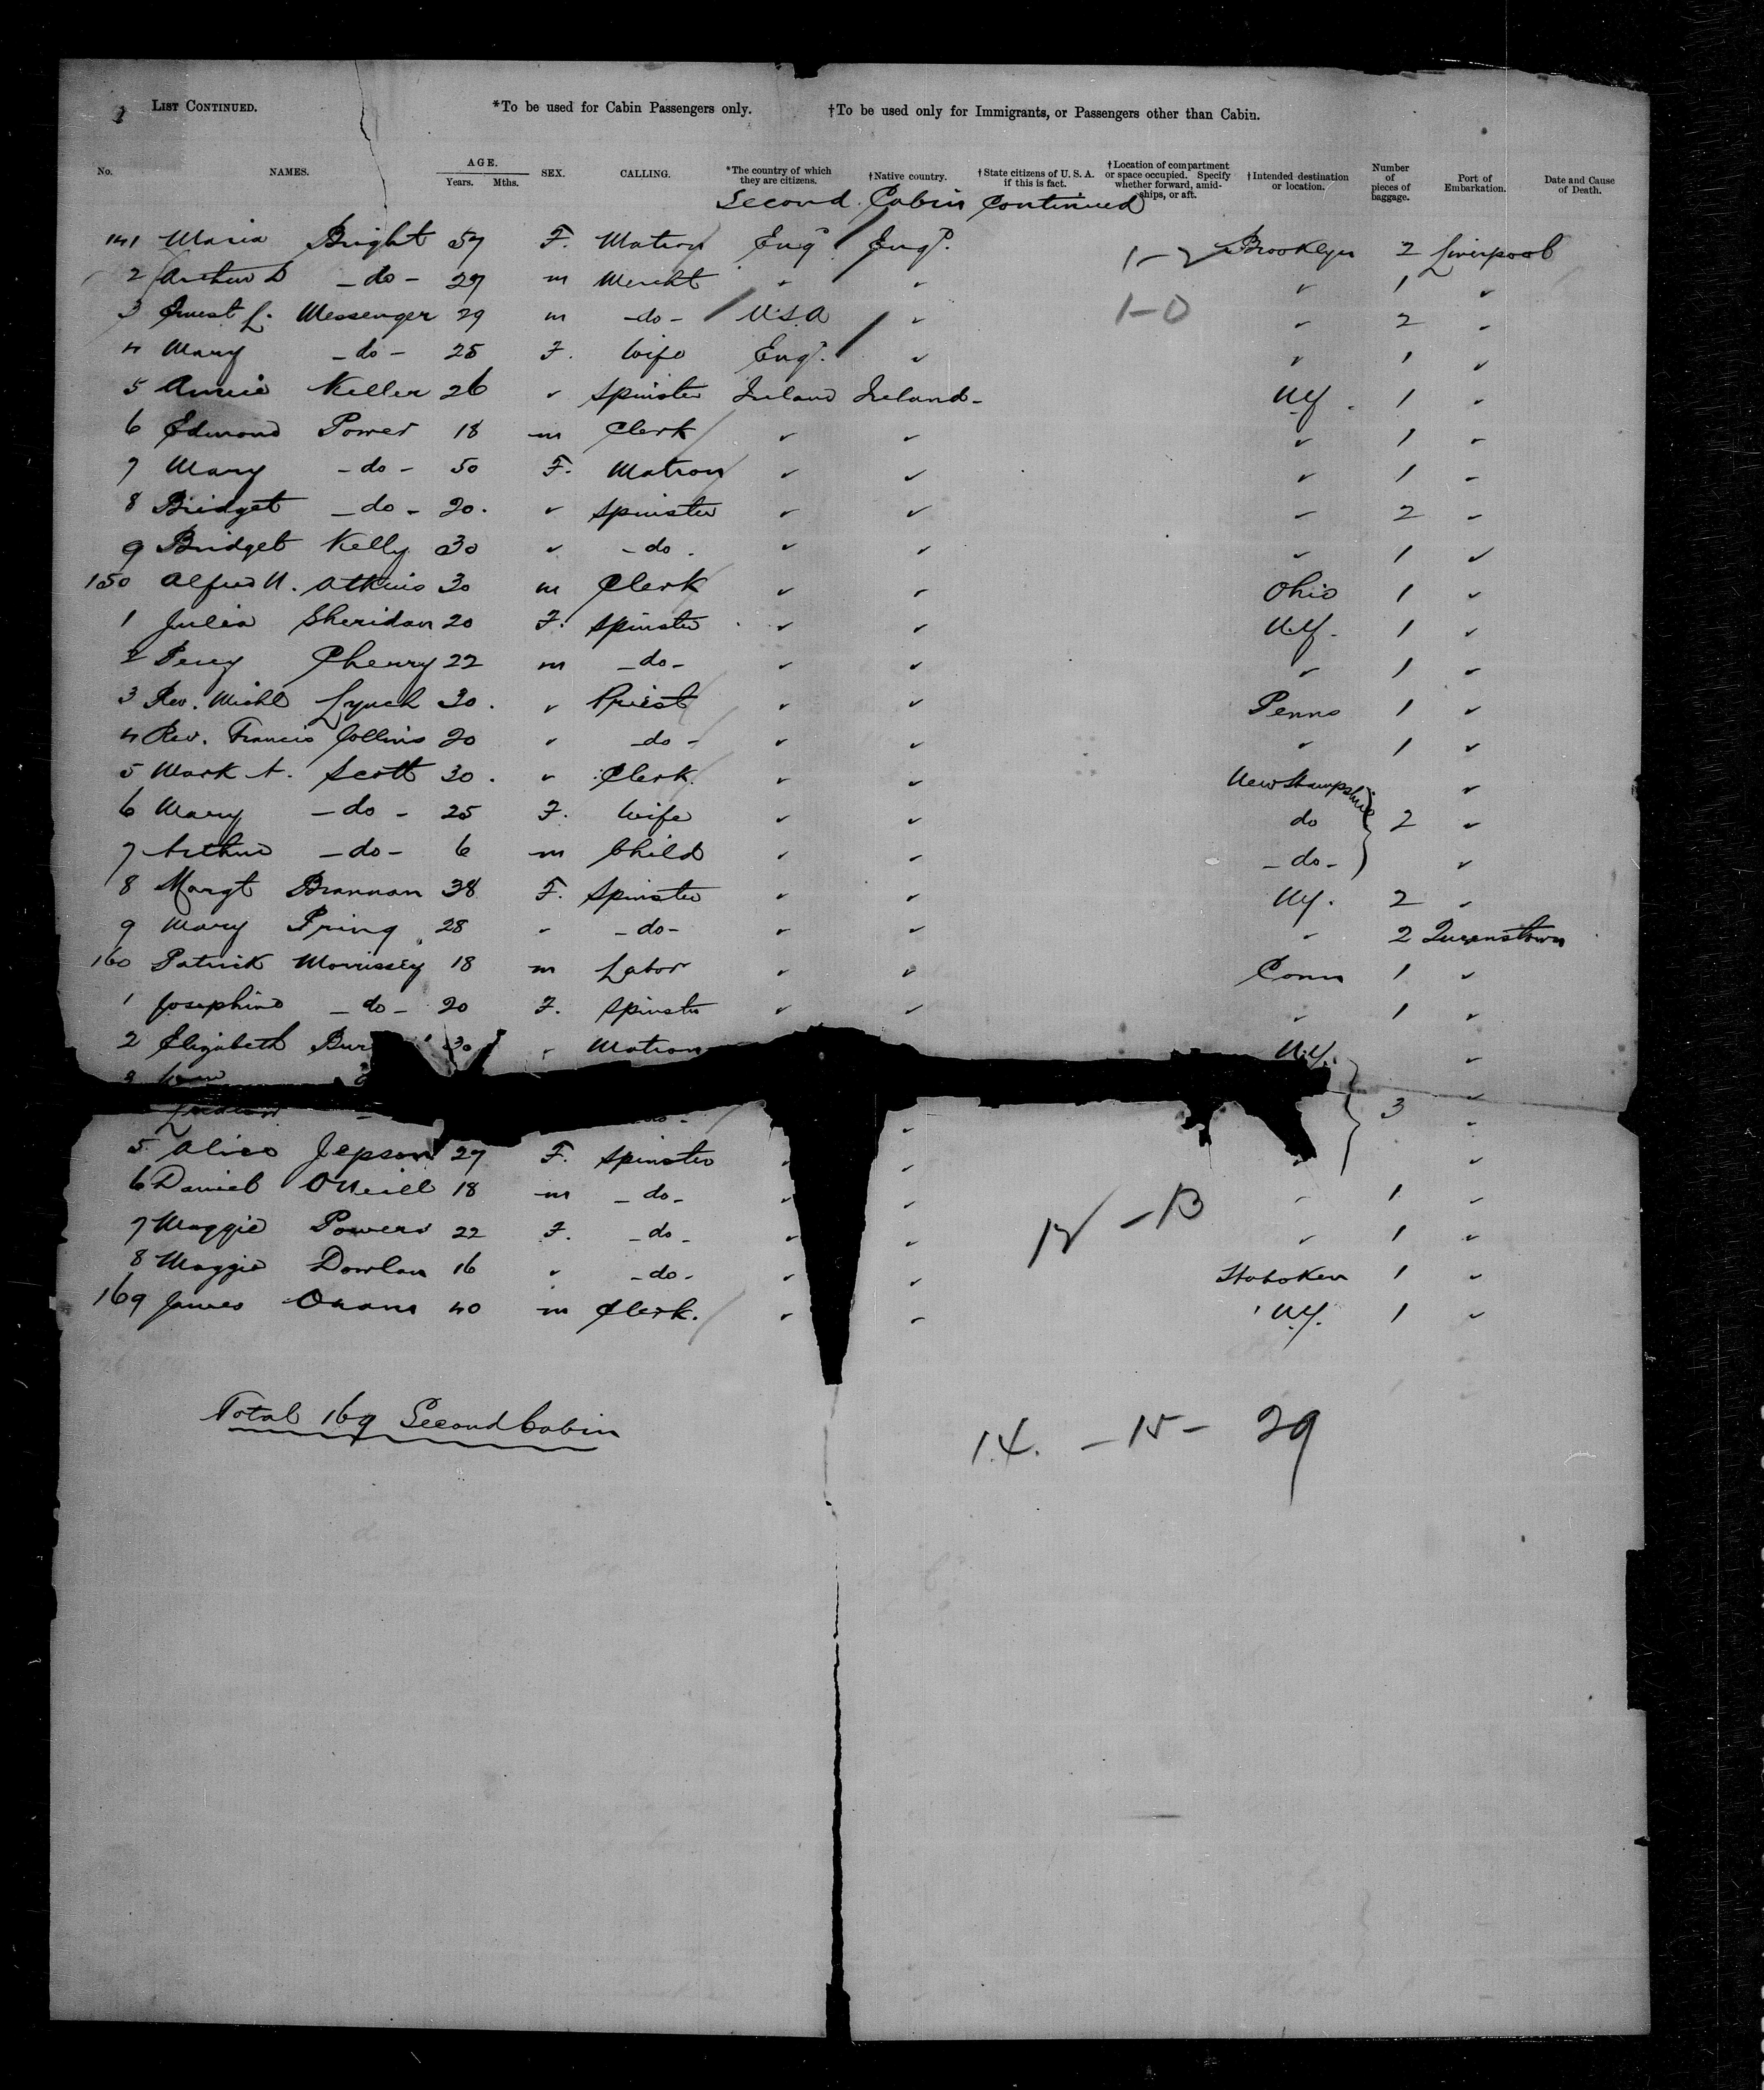 LIST CONTINUED. *To be used for Cabin Passengers only. †To be used only for Immigrants, or Passengers other than Cabin.
No. NAMES. AGE. Years. Mths. SEX. CALLING. *The country of which they are citizens. †Native country. †State citizens of U. S. A. if this is fact. †Location of compartment or space occupied. Specify whether forward, amidships, or aft. †Intended destination or location. Number of pieces of baggage. Port of Embarkation. Date and Cause of Death.
Second Cabin Continued
141 Maria Bright 57 F. Matron Engd Engd. 1-2 Brooklyn 2 Liverpool
2 Arthur D -do- 27 m Mercht ✓ ✓ ✓ 1 ✓
3 Ernest L. Messenger 29 m -do- U.S.A ✓ 1-0 ✓ 2 ✓
4 Mary -do- 25 F. Wife Engd. ✓ ✓ 1 ✓
5 Annie Keller 26 ✓ Spinster Ireland Ireland- N.Y. 1 ✓
6 Edmond Power 18 m Clerk ✓ ✓ ✓ 1 ✓
7 Mary -do- 50 F. Matron ✓ ✓ ✓ 1 ✓
8 Bridget -do- 20. ✓ Spinster ✓ ✓ ✓ 2 ✓
9 Bridget Kelly 30 ✓ -do. ✓ ✓ ✓ 1 ✓
150 Alfred N. Atkins 30 m Clerk ✓ ✓ Ohio 1 ✓
1 Julia Sheridan 20 F. Spinster ✓ ✓ N.Y. 1 ✓
2 Percy 22 m -do- ✓ ✓ ✓ 1 ✓
3 Rev. Michl Lynch 30. ✓ Priest ✓ ✓ Penna 1 ✓
4 Rev. Francis Collins 20 ✓ -do- ✓ ✓ ✓ 1 ✓
5 Mark A. Scott 30. ✓ Clerk. ✓ ✓ New Hampshire ✓
6 Mary -do- 25 F. Wife ✓ ✓ do 2 ✓
7 Arthur -do- 6 m Child ✓ ✓ -do- ✓
8 Margt Brannan 38 F. Spinster ✓ ✓ N.Y. 2 ✓
9 Mary Pring 28 ✓ -do- ✓ ✓ ✓ 2 Queenstown
160 Patrick Morrissey 18 m Labor ✓ ✓ Conn 1 ✓
1 Josephine -do- 20 F. Spinster ✓ ✓ ✓ 1 ✓
2 Elizabeth 30 ✓ Matron N.Y. ✓
3 ✓
✓ 3 ✓
5 Alice Jepson 27 F. Spinster ✓ ✓ ✓ ✓
6 Daniel O'Neill 18 m -do- ✓ ✓ ✓ 1 ✓
7 Maggie Powers 22 F. -do- ✓ ✓ ✓ 1 ✓
8 Maggie Dowlan 16 ✓ -do- ✓ ✓ Hoboken 1 ✓
169 James 40 m Clerk. ✓ ✓ N.Y. 1 ✓
Total 169 Second Cabin
14. -15- 29